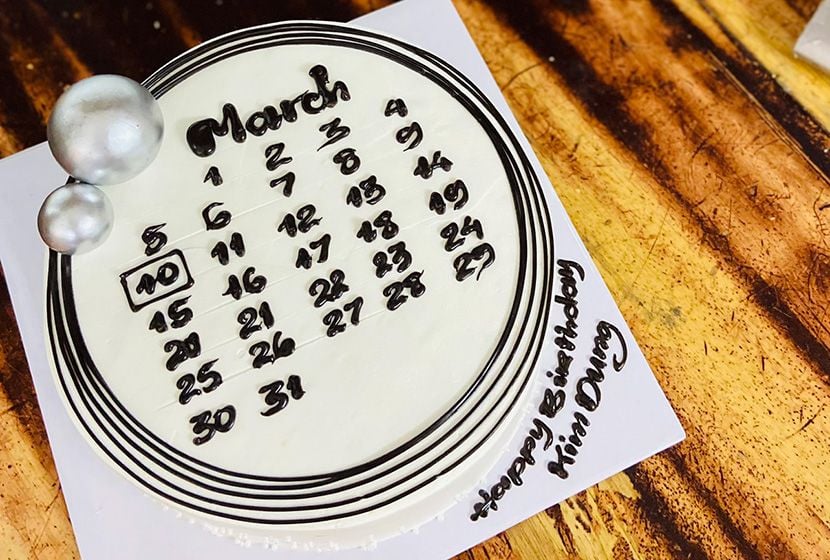 March
1 2 3 4
5 6 7 8 9
10 11 12 13 14
15 16 17 18 19
20 21 22 23 24
25 26 27 28 29
30 31
Happy Birthday
Kim Dung